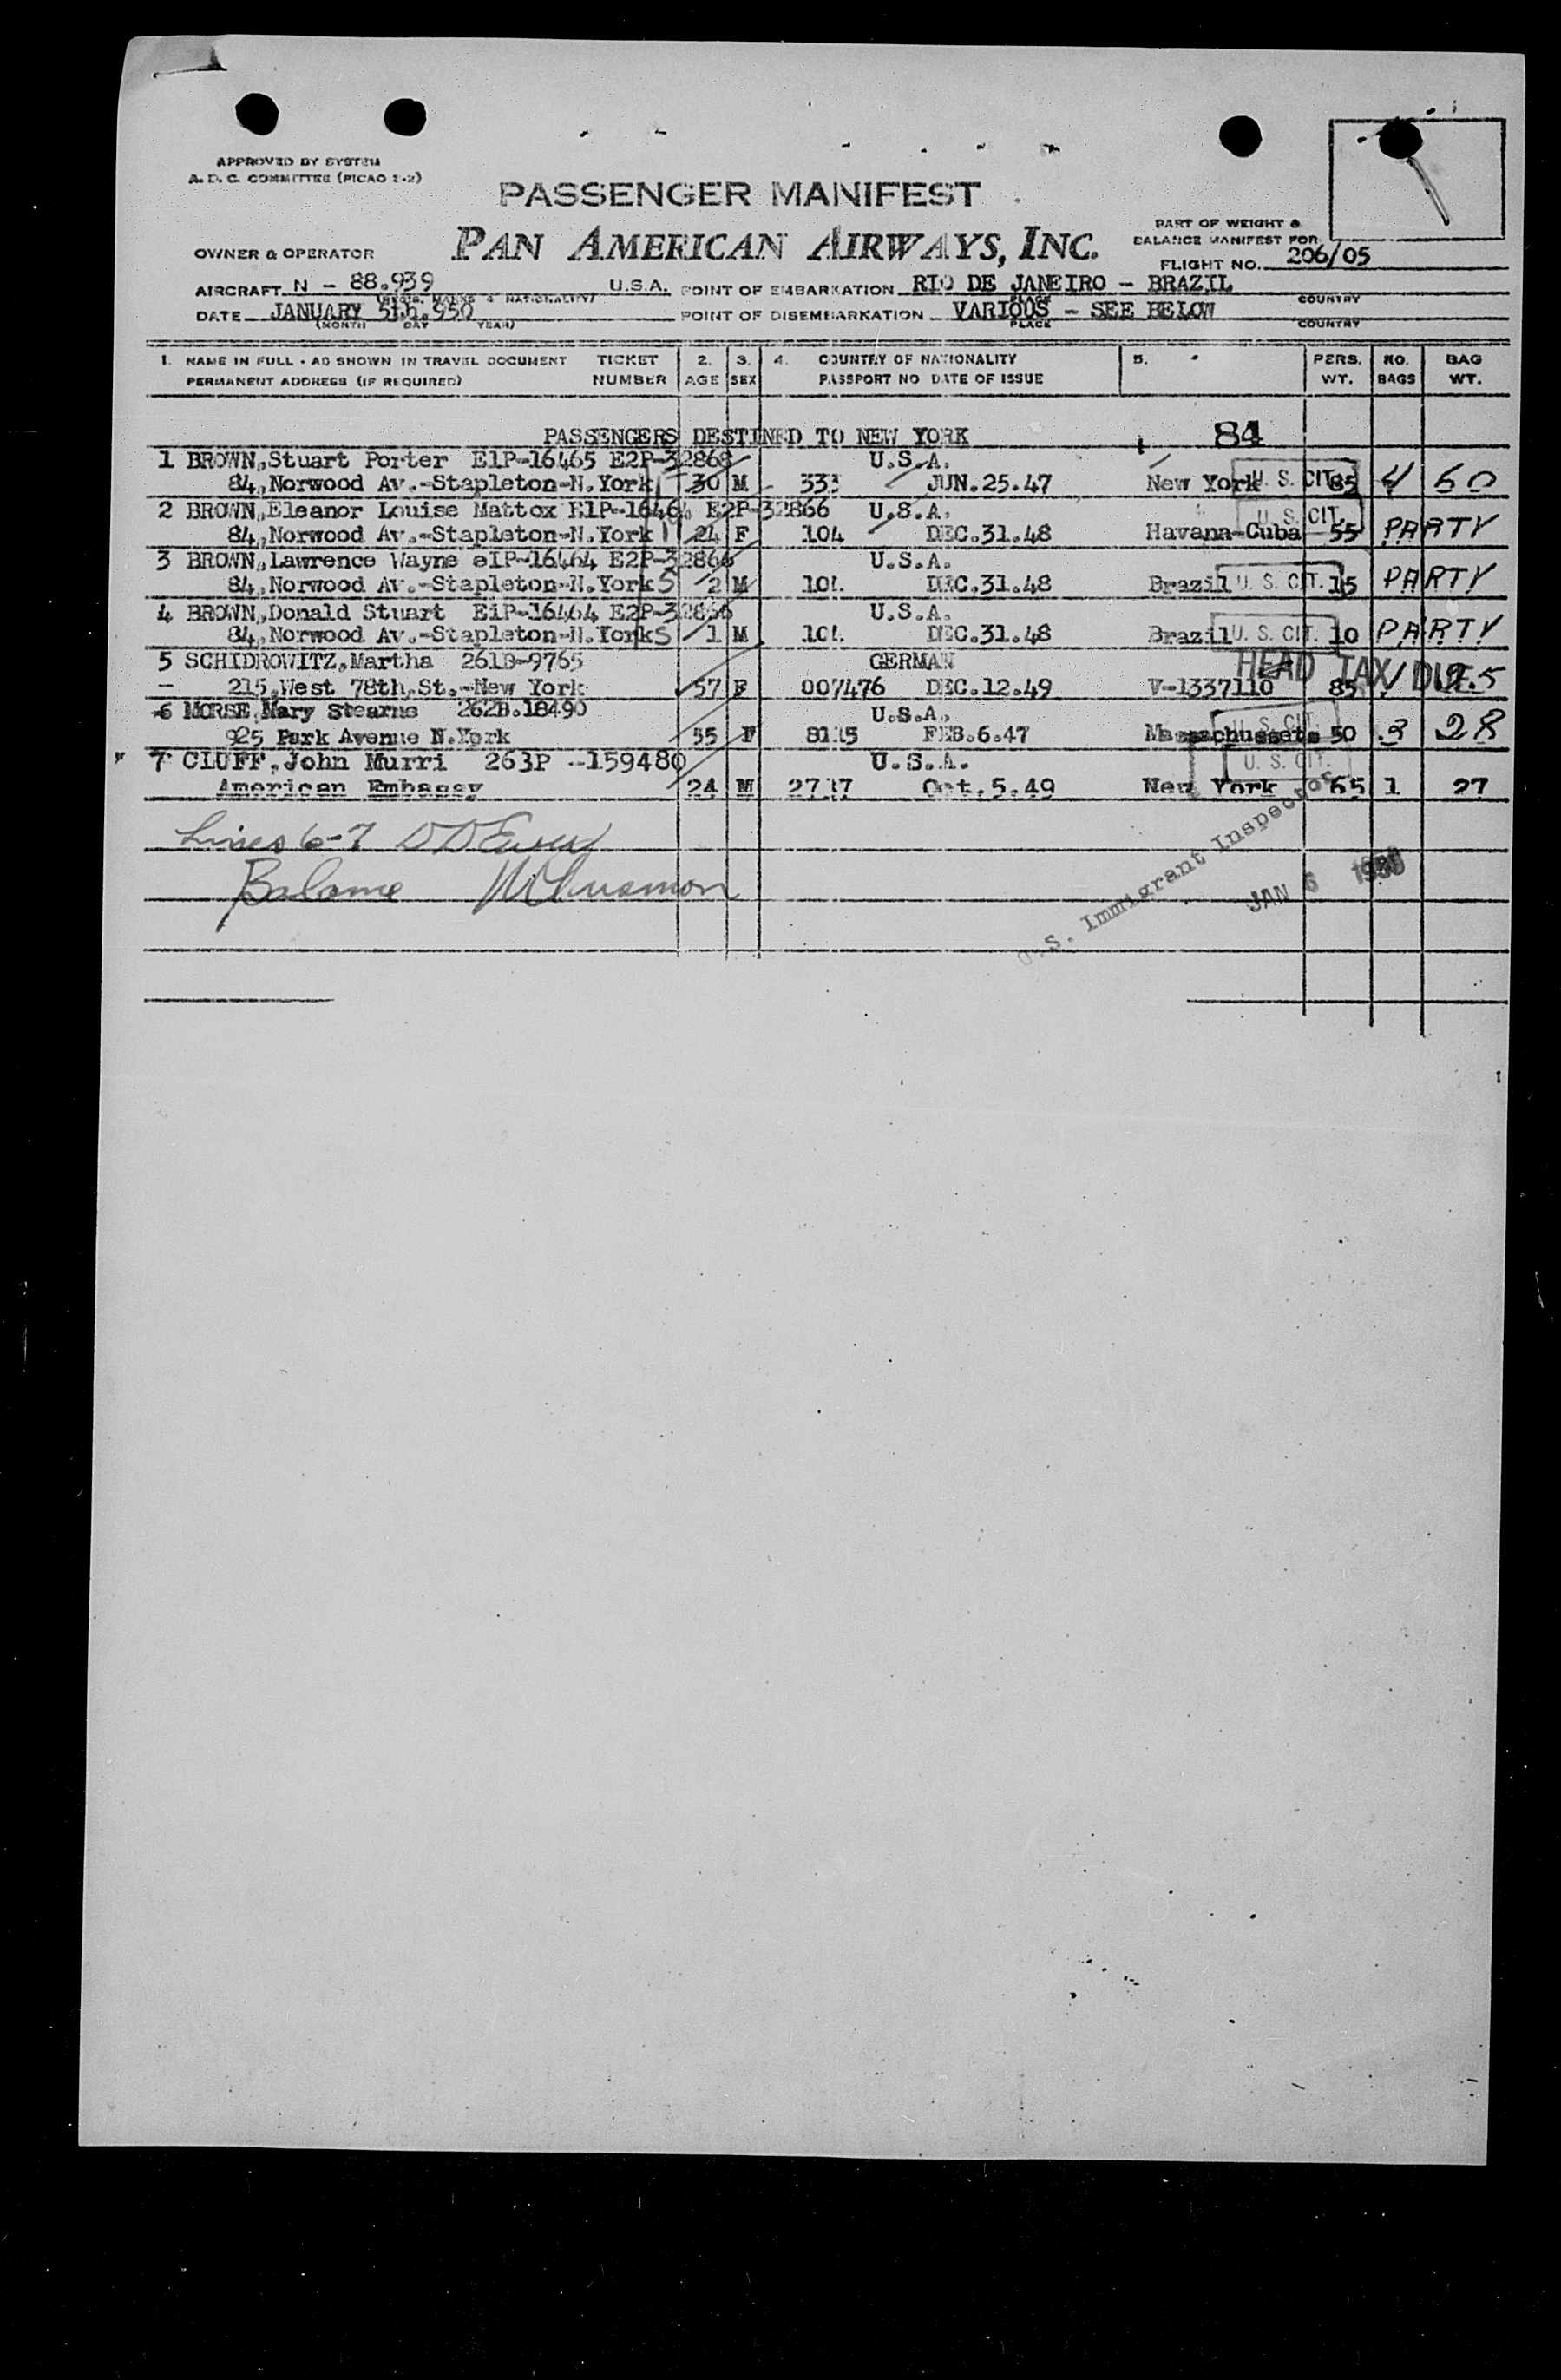 APPROVED BY SYSTEM
A. D. C. COMMITTEE (PICAO 2-2)
PASSENGER MANIFEST
PART OF WEIGHT &
BALANCE MANIFEST FOR
OWNER & OPERATOR PAN AMERICAN AIRWAYS, INC. FLIGHT NO. 206/05
AIRCRAFT N - 88.939 U.S.A. POINT OF EMBARKATION RIO DE JANEIRO - BRAZIL
(REGIS. MARKS & NATIONALITY) PLACE COUNTRY
DATE JANUARY 5th.950 POINT OF DISEMBARKATION VARIOUS - SEE BELOW
(MONTH DAY YEAR) PLACE COUNTRY
1. NAME IN FULL - AS SHOWN IN TRAVEL DOCUMENT TICKET 2. 3. 4. COUNTRY OF NATIONALITY 5. PERS. NO. BAG
PERMANENT ADDRESS (IF REQUIRED) NUMBER AGE SEX PASSPORT NO DATE OF ISSUE WT. BAGS WT.
PASSENGERS DESTINED TO NEW YORK 84
1 BROWN,Stuart Porter E1P-16465 E2P-32868 U.S.A.
84,Norwood Av.-Stapleton-N.York 30 M 333 JUN.25.47 New York U. S. CIT. 85 4 60
2 BROWN,Eleanor Louise Mattox E1P-16464 E2P-32866 U.S.A.
84,Norwood Av.-Stapleton-N.York 24 F 104 DEC.31.48 Havana-Cuba U. S. CIT. 55 PARTY
3 BROWN,Lawrence Wayne eIP-16464 E2P-32866 U.S.A.
84,Norwood Av.-Stapleton-N.York 5 2 M 104 DEC.31.48 Brazil U. S. CIT. 15 PARTY
4 BROWN,Donald Stuart EiP-16464 E2P-32866 U.S.A.
84,Norwood Av.-Stapleton-N.York 5 1 M 104 DEC.31.48 Brazil U. S. CIT. 10 PARTY
5 SCHIDROWITZ,Martha 261B-9765 GERMAN HEAD TAX DUE
215,West 78th.St.-New York 57 F 007476 DEC.12.49 V-1337110 85 1 25
6 MORSE,Mary Stearns 262B.18490 U.S.A.
925 Park Avenue N.York 55 F 8115 FEB.6.47 Massachussets U. S. CIT. 50 3 28
7 CLUFF,John Murri 263P -159480 U.S.A.
American Embassy 24 M 2737 Oct.5.49 New York U. S. CIT. 65 1 27
Lines 6-7
Balance
U.S. Immigrant Inspector
JAN 6 1950